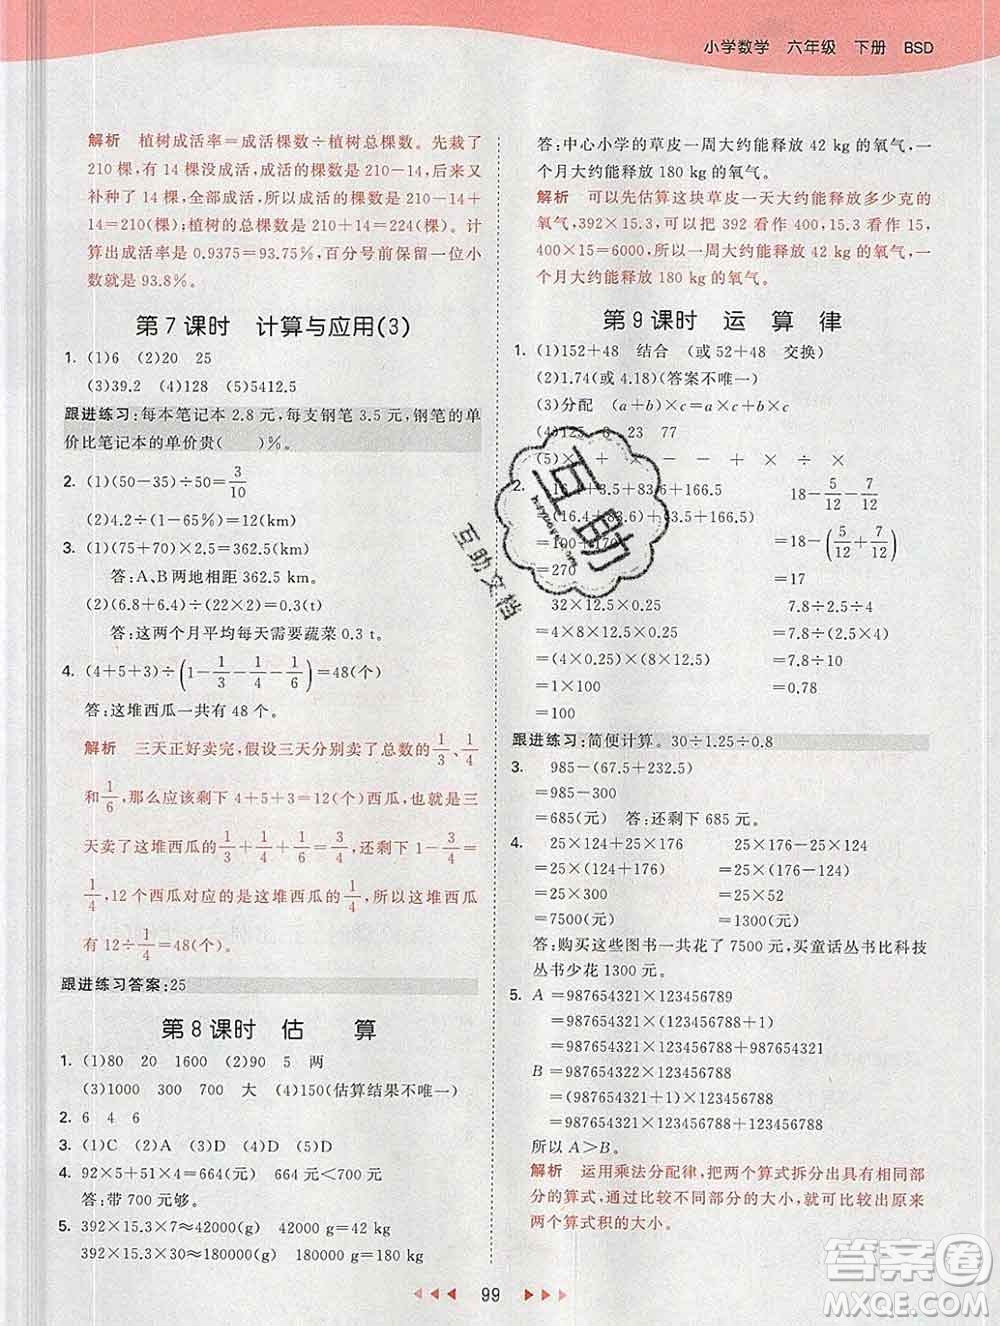 小学数学 六年级 下册 BSD
解析 植树成活率=成活棵数÷植树总棵数。先栽了
210 棵，有 14 棵没成活，成活的棵数是 210-14，
补种了 14 棵，全部成活，所以成活的棵数是 210-14+
14=210(棵)；植树的总棵数是 210+14=224(棵)。计
算出成活率是 0.9375=93.75%，百分号前保留一位小
数就是 93.8%。
第 7 课时 计算与应用(3)
1. (1)6 (2)20 25
(3)39.2 (4)128 (5)5412.5
跟进练习：每本笔记本 2.8 元，每支钢笔 3.5 元，钢笔的单
价比笔记本的单价贵( )%。
2. (1)(50-35)÷50=3/10
(2)4.2÷(1-65%)=12(km)
3. (1)(75+70)×2.5=362.5(km)
答：A、B 两地相距 362.5 km。
(2)(6.6+6.6)÷(22×2)=0.3(t)
答：这两个月平均每天需要蔬菜 0.3 t。
4. (4+5+3)÷(1-1/3-1/4-1/6)=48(个)
答：这堆西瓜一共有 48 个。
解析 三天正好卖完，假设三天分别卖了总数的1/3、1/4
和1/6，那么应该剩下 4+5+3=12(个)西瓜，也就是三
天卖了这堆西瓜的1/3+1/4+1/6=3/4，还剩下 1-3/4=
1/4，12 个西瓜对应的是这堆西瓜的1/4，所以这堆西瓜
有 12÷1/4=48(个)。
跟进练习答案：25
第 8 课时 估 算
1. (1)80 20 1600 (2)90 5 两
(3)1000 300 700 大 (4)150(估算结果不唯一)
2. 6 4 6
3. (1)C (2)D (3)D (4)D (5)D
4. 92×5+51×4=664(元) 664<700
答：带 700 元够。
5. 392×15.3×7≈42000(g) 42000 g=42 kg
392×15.3×30≈180000(g) 180000 g=180 kg
答：中心小学的草皮一周大约能释放 42 kg 的氧气，一
个月大约能释放 180 kg 的氧气。
解析 可以先估算这块草皮一天大约能释放多少克的
氧气，392×15.3，可以把 392 看作 400，15.3 看作 15，
400×15=6000，所以一周大约能释放 42 kg 的氧气，
一个月大约能释放 180 kg 的氧气。
第 9 课时 运 算 律
1. (1)152+48 结合 (或 52+48 交换)
(2)1.74(或 4.18)(答案不唯一)
(3)分配 (a+b)×c=a×c+b×c
(4)125 8 23 77
(5)× × × × ×
2. 16.4+3.5+83.6+166.5 18-5/12-7/12
=(16.4+83.6)+(3.5+166.5) =18-(5/12+7/12)
=100+170 =17
=270
32×12.5×0.25 7.8÷2.5÷4
=4×8×12.5×0.25 =7.8÷(2.5×4)
=(4×0.25)×(8×12.5) =7.8÷10
=1×100 =0.78
=100
跟进练习：简便计算。30÷1.25÷0.8
3. 985-(67.5+232.5)
=985-300
=685(元) 答：还剩下 685 元。
4. 25×124+25×176 25×176-25×124
=25×(124+176) =25×(176-124)
=25×300 =25×52
=7500(元) =1300(元)
答：购买这些图书一共花了 7500 元，买童话丛书比科技
丛书少花 1300 元。
5. A=987654321×123456789
=987654321×(123456788+1)
=987654321×123456788+987654321
B=987654322×123456788
=(987654321+1)×123456788
=987654321×123456788+123456788
所以 A>B。
解析 运用乘法分配律，把两个算式拆分出具有相同部
分的算式，通过比较不同部分的大小，就可以比较出原来
两个算式积的大小。
99
互助
互助文档
答案圈
MXQE.COM